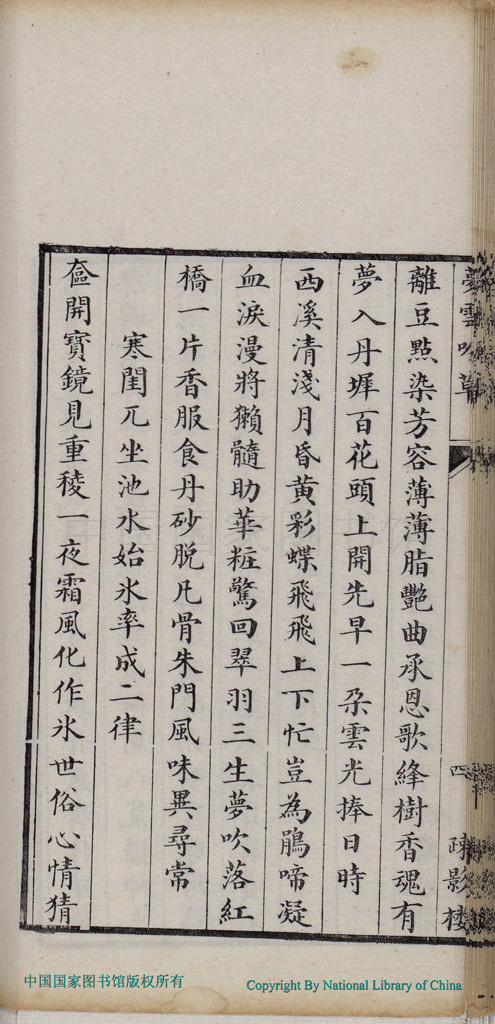 夢雲吟草
四
疎影楼
離豆點染芳容薄薄脂艷曲承恩歌絳樹香魂有
夢入丹墀百花頭上開先早一朶雲光捧日時
西溪清淺月昏黃彩蝶飛飛上下忙豈為鵑啼凝
血淚漫將獺髓助華粧驚回翠羽三生夢吹落紅
橋一片香服食丹砂脫凡骨朱門風味異尋常
寒閨兀坐池水始氷率成二律
奩開寶鏡見重稜一夜霜風化作氷世俗心情猜
中国国家图书馆版权所有
Copyright By National Library of China